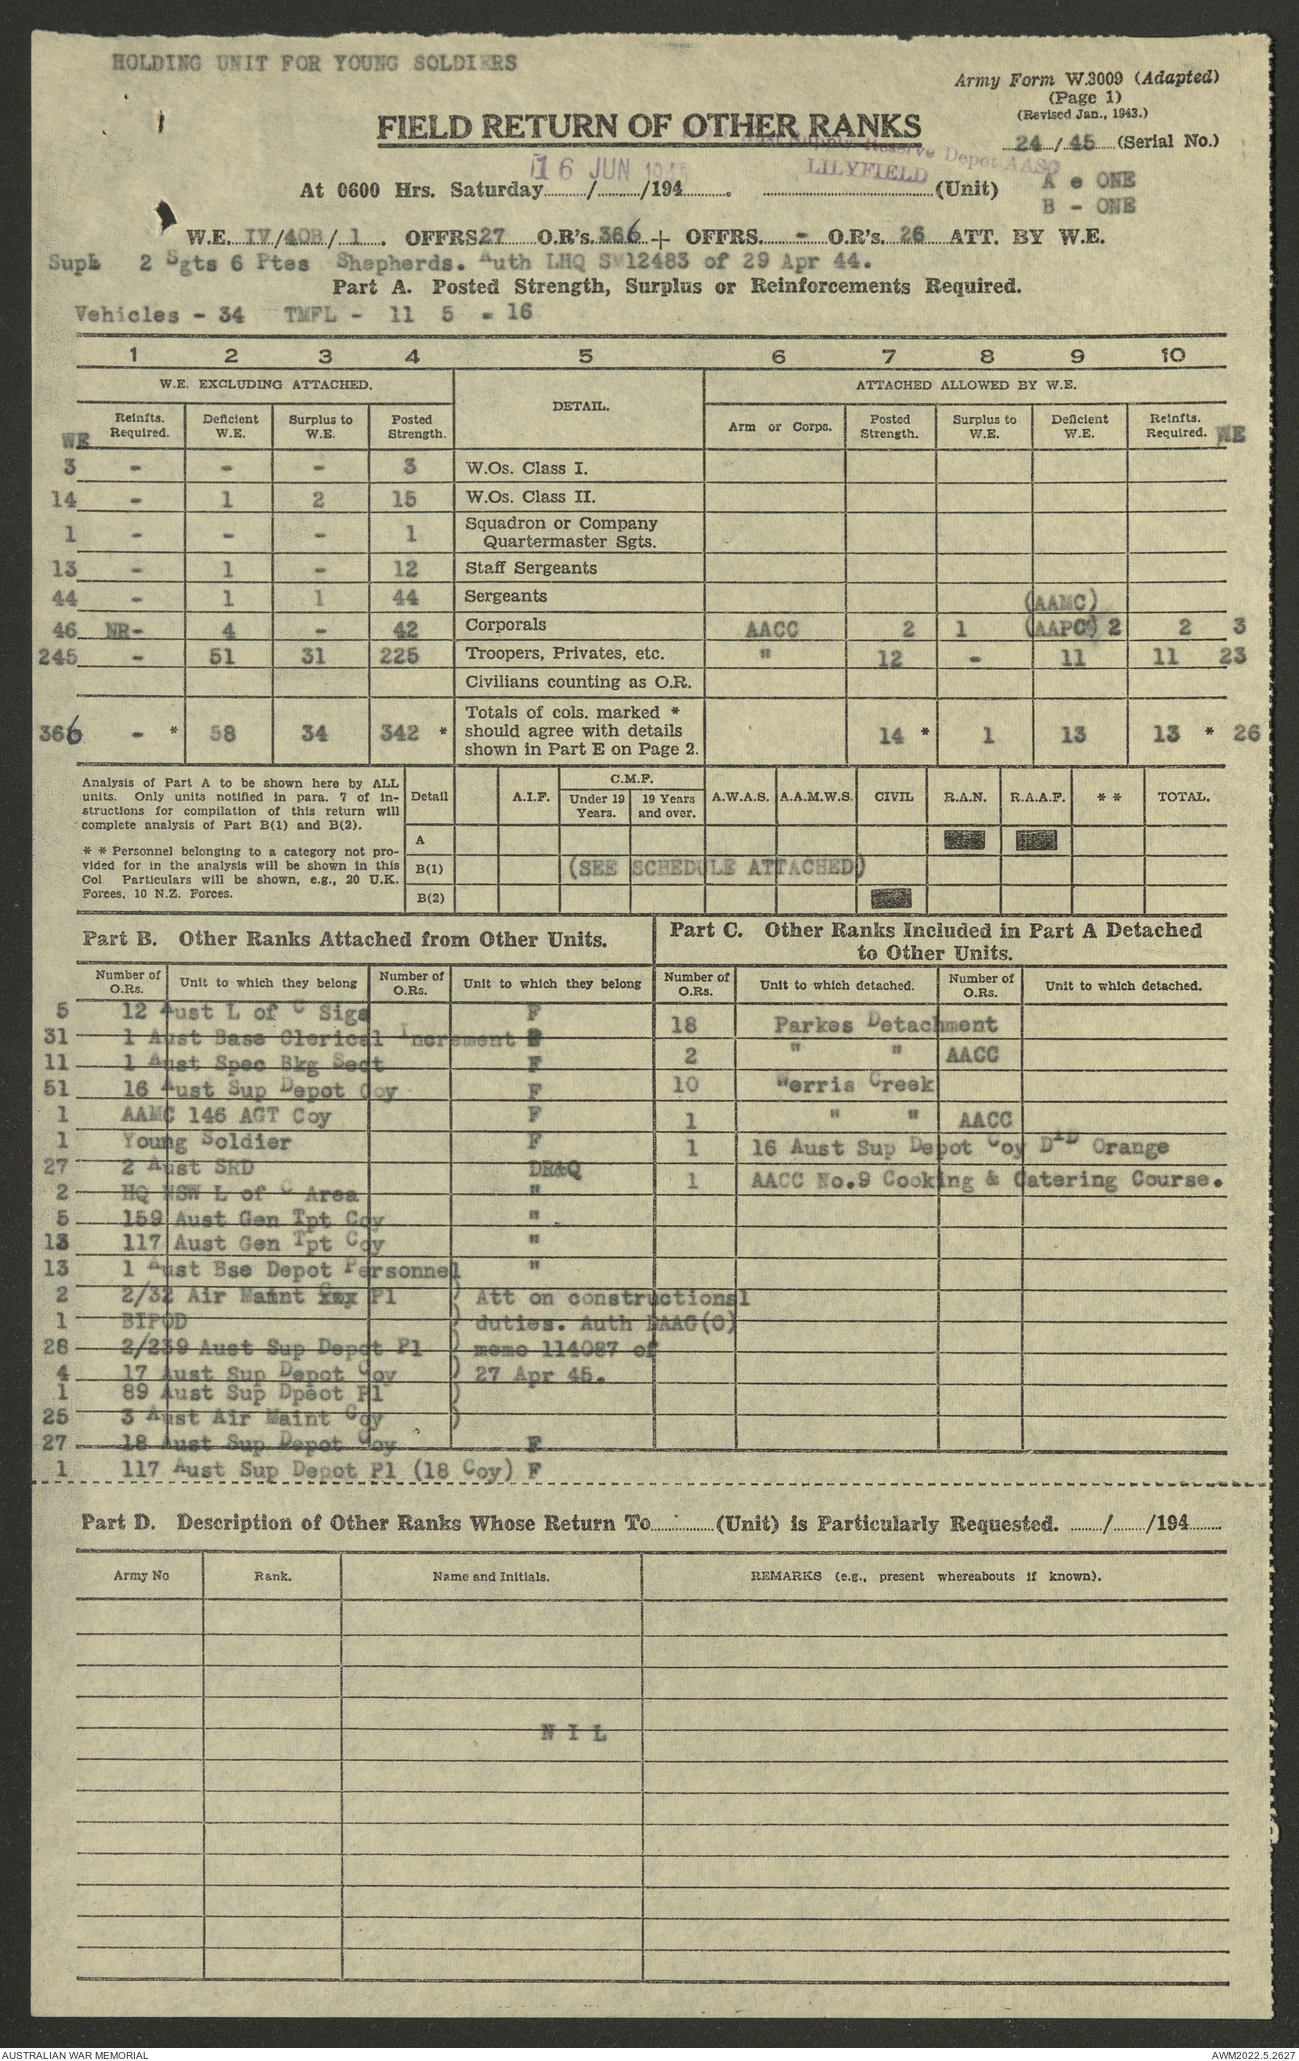 HOLDING UNIT FOR YOUNG SOLDIERS
Army Form W.3009 (Adapted)
(Page 1)
(Revised Jan., 1943.)
FIELD RETURN OF OTHER RANKS
24 / 45 (Serial No.)
Aust Supply Reserve Depot AASC
LILYFIELD
16 JUN 1945
At 0600 Hrs. Saturday......../......../194......... . ..............................(Unit) A e ONE
B - ONE
W.E. IV/40B/ 1 . OFFRS 27 O.R's. 366 + OFFRS. - O.R's. 26 ATT. BY W.E.
SupL 2 Sgts 6 Ptes Shepherds. Auth LHQ SM12483 of 29 Apr 44.
Part A. Posted Strength, Surplus or Reinforcements Required.
Vehicles - 34 TMFL - 11 5 - 16
1 2 3 4 5 6 7 8 9 10
W.E. EXCLUDING ATTACHED. DETAIL. ATTACHED ALLOWED BY W.E.
WE Reinfts. Required. Deficient W.E. Surplus to W.E. Posted Strength. Arm or Corps. Posted Strength. Surplus to W.E. Deficient W.E. Reinfts. Required. WE
3 - - - 3 W.Os. Class I.
14 - 1 2 15 W.Os. Class II.
1 - - - 1 Squadron or Company Quartermaster Sgts.
13 - 1 - 12 Staff Sergeants
44 - 1 1 44 Sergeants (AAMC)
46 NR- 4 - 42 Corporals AACC 2 1 (AAPC) 2 2 3
245 - 51 31 225 Troopers, Privates, etc. " 12 - 11 11 23
Civilians counting as O.R.
366 - * 58 34 342 * Totals of cols. marked * should agree with details shown in Part E on Page 2. 14 * 1 13 13 * 26
Analysis of Part A to be shown here by ALL
units. Only units notified in para. 7 of in-
structions for compilation of this return will
complete analysis of Part B(1) and B(2).
* * Personnel belonging to a category not pro-
vided for in the analysis will be shown in this
Col Particulars will be shown, e.g., 20 U.K.
Forces, 10 N.Z. Forces.
Detail A.I.F. C.M.F. Under 19 Years. 19 Years and over. A.W.A.S. A.A.M.W.S. CIVIL R.A.N. R.A.A.F. * * TOTAL.
A
B(1) (SEE SCHEDULE ATTACHED)
B(2)
Part B. Other Ranks Attached from Other Units.
Number of O.Rs. Unit to which they belong Number of O.Rs. Unit to which they belong
5 12 Aust L of C Sigs F
31 1 Aust Base Clerical Increment F
11 1 Aust Spec Bkg Sect F
51 16 Aust Sup Depot Coy F
1 AAMC 146 AGT Coy F
1 Young Soldier F
27 2 Aust SRD DR&Q
2 HQ NSW L of C Area "
5 159 Aust Gen Tpt Coy "
13 117 Aust Gen Tpt Coy "
13 1 Aust Bse Depot Personnel "
2 2/32 Air Maint Pl ) Att on constructional
1 BIPOD ) duties. Auth DAAG(O)
28 2/239 Aust Sup Depot Pl ) memo 114087 of
4 17 Aust Sup Depot Coy ) 27 Apr 45.
1 89 Aust Sup Dpeot Pl )
25 3 Aust Air Maint Coy )
27 18 Aust Sup Depot Coy F
1 117 Aust Sup Depot Pl (18 Coy) F
Part C. Other Ranks Included in Part A Detached
to Other Units.
Number of O.Rs. Unit to which detached. Number of O.Rs. Unit to which detached.
18 Parkes Detachment
2 " " AACC
10 Werris Creek
1 " " AACC
1 16 Aust Sup Depot Coy DID Orange
1 AACC No.9 Cooking & Catering Course.
Part D. Description of Other Ranks Whose Return To..............(Unit) is Particularly Requested. ......../......../194........
Army No Rank. Name and Initials. REMARKS (e.g., present whereabouts if known).
N I L
AUSTRALIAN WAR MEMORIAL
AWM2022.5.2627